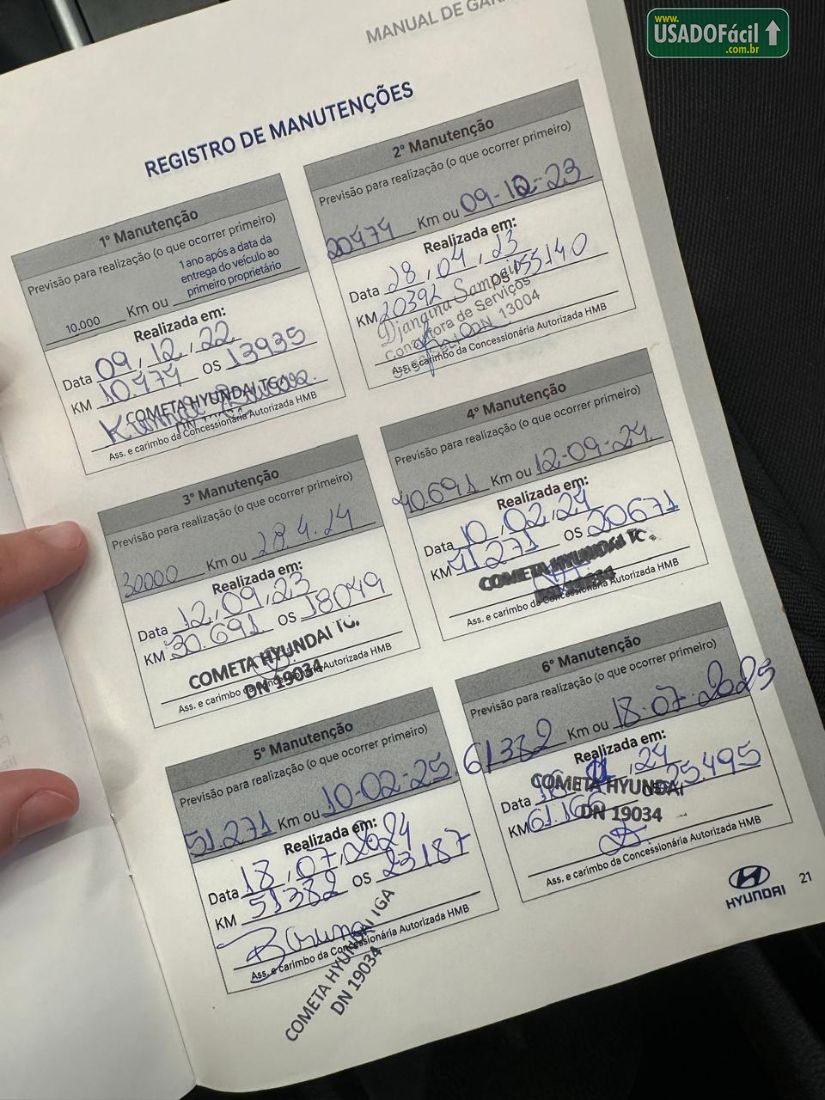 MANUAL DE
www.
USADOFácil
.com.br
REGISTRO DE MANUTENÇÕES
1º Manutenção
Previsão para realização (o que ocorrer primeiro)
10.000 Km ou 1 ano após a data da
entrega do veículo ao
primeiro proprietário
Realizada em:
Data 09, 12, 22
KM 10.474 OS 13935
COMETA HYUNDAI TGA
Ass. e carimbo da Concessionária Autorizada HMB
2º Manutenção
Previsão para realização (o que ocorrer primeiro)
20474 Km ou 09-12-23
Realizada em:
Data 28, 04, 23
KM 20392 OS 155140
Djangina Sampaio
de Serviços
13004
Ass. e carimbo da Concessionária Autorizada HMB
3º Manutenção
Previsão para realização (o que ocorrer primeiro)
30000 Km ou 28.4.24
Realizada em:
Data 12, 09, 23
KM 30.691 OS 18049
COMETA HYUNDAI TC.
DN 19034
Ass. e carimbo da Concessionária Autorizada HMB
4º Manutenção
Previsão para realização (o que ocorrer primeiro)
40.691 Km ou 12-09-24.
Realizada em:
Data 10, 02, 24
KM 41.271 OS 20671
COMETA HYUNDAI TC.
Ass. e carimbo da Concessionária Autorizada HMB
5º Manutenção
Previsão para realização (o que ocorrer primeiro)
51.271 Km ou 10-02-25.
Realizada em:
Data 18, 07, 2024
KM 51382 OS 23187
Bruna
Ass. e carimbo da Concessionária Autorizada HMB
COMETA HYUNDAI TGA
DN 19034
6º Manutenção
Previsão para realização (o que ocorrer primeiro)
61382 Km ou 18.07.2025
Realizada em:
Data 24
COMETA HYUNDAI
KM 61.160 OS 25.495
DN 19034
Ass. e carimbo da Concessionária Autorizada HMB
HYUNDAI
21